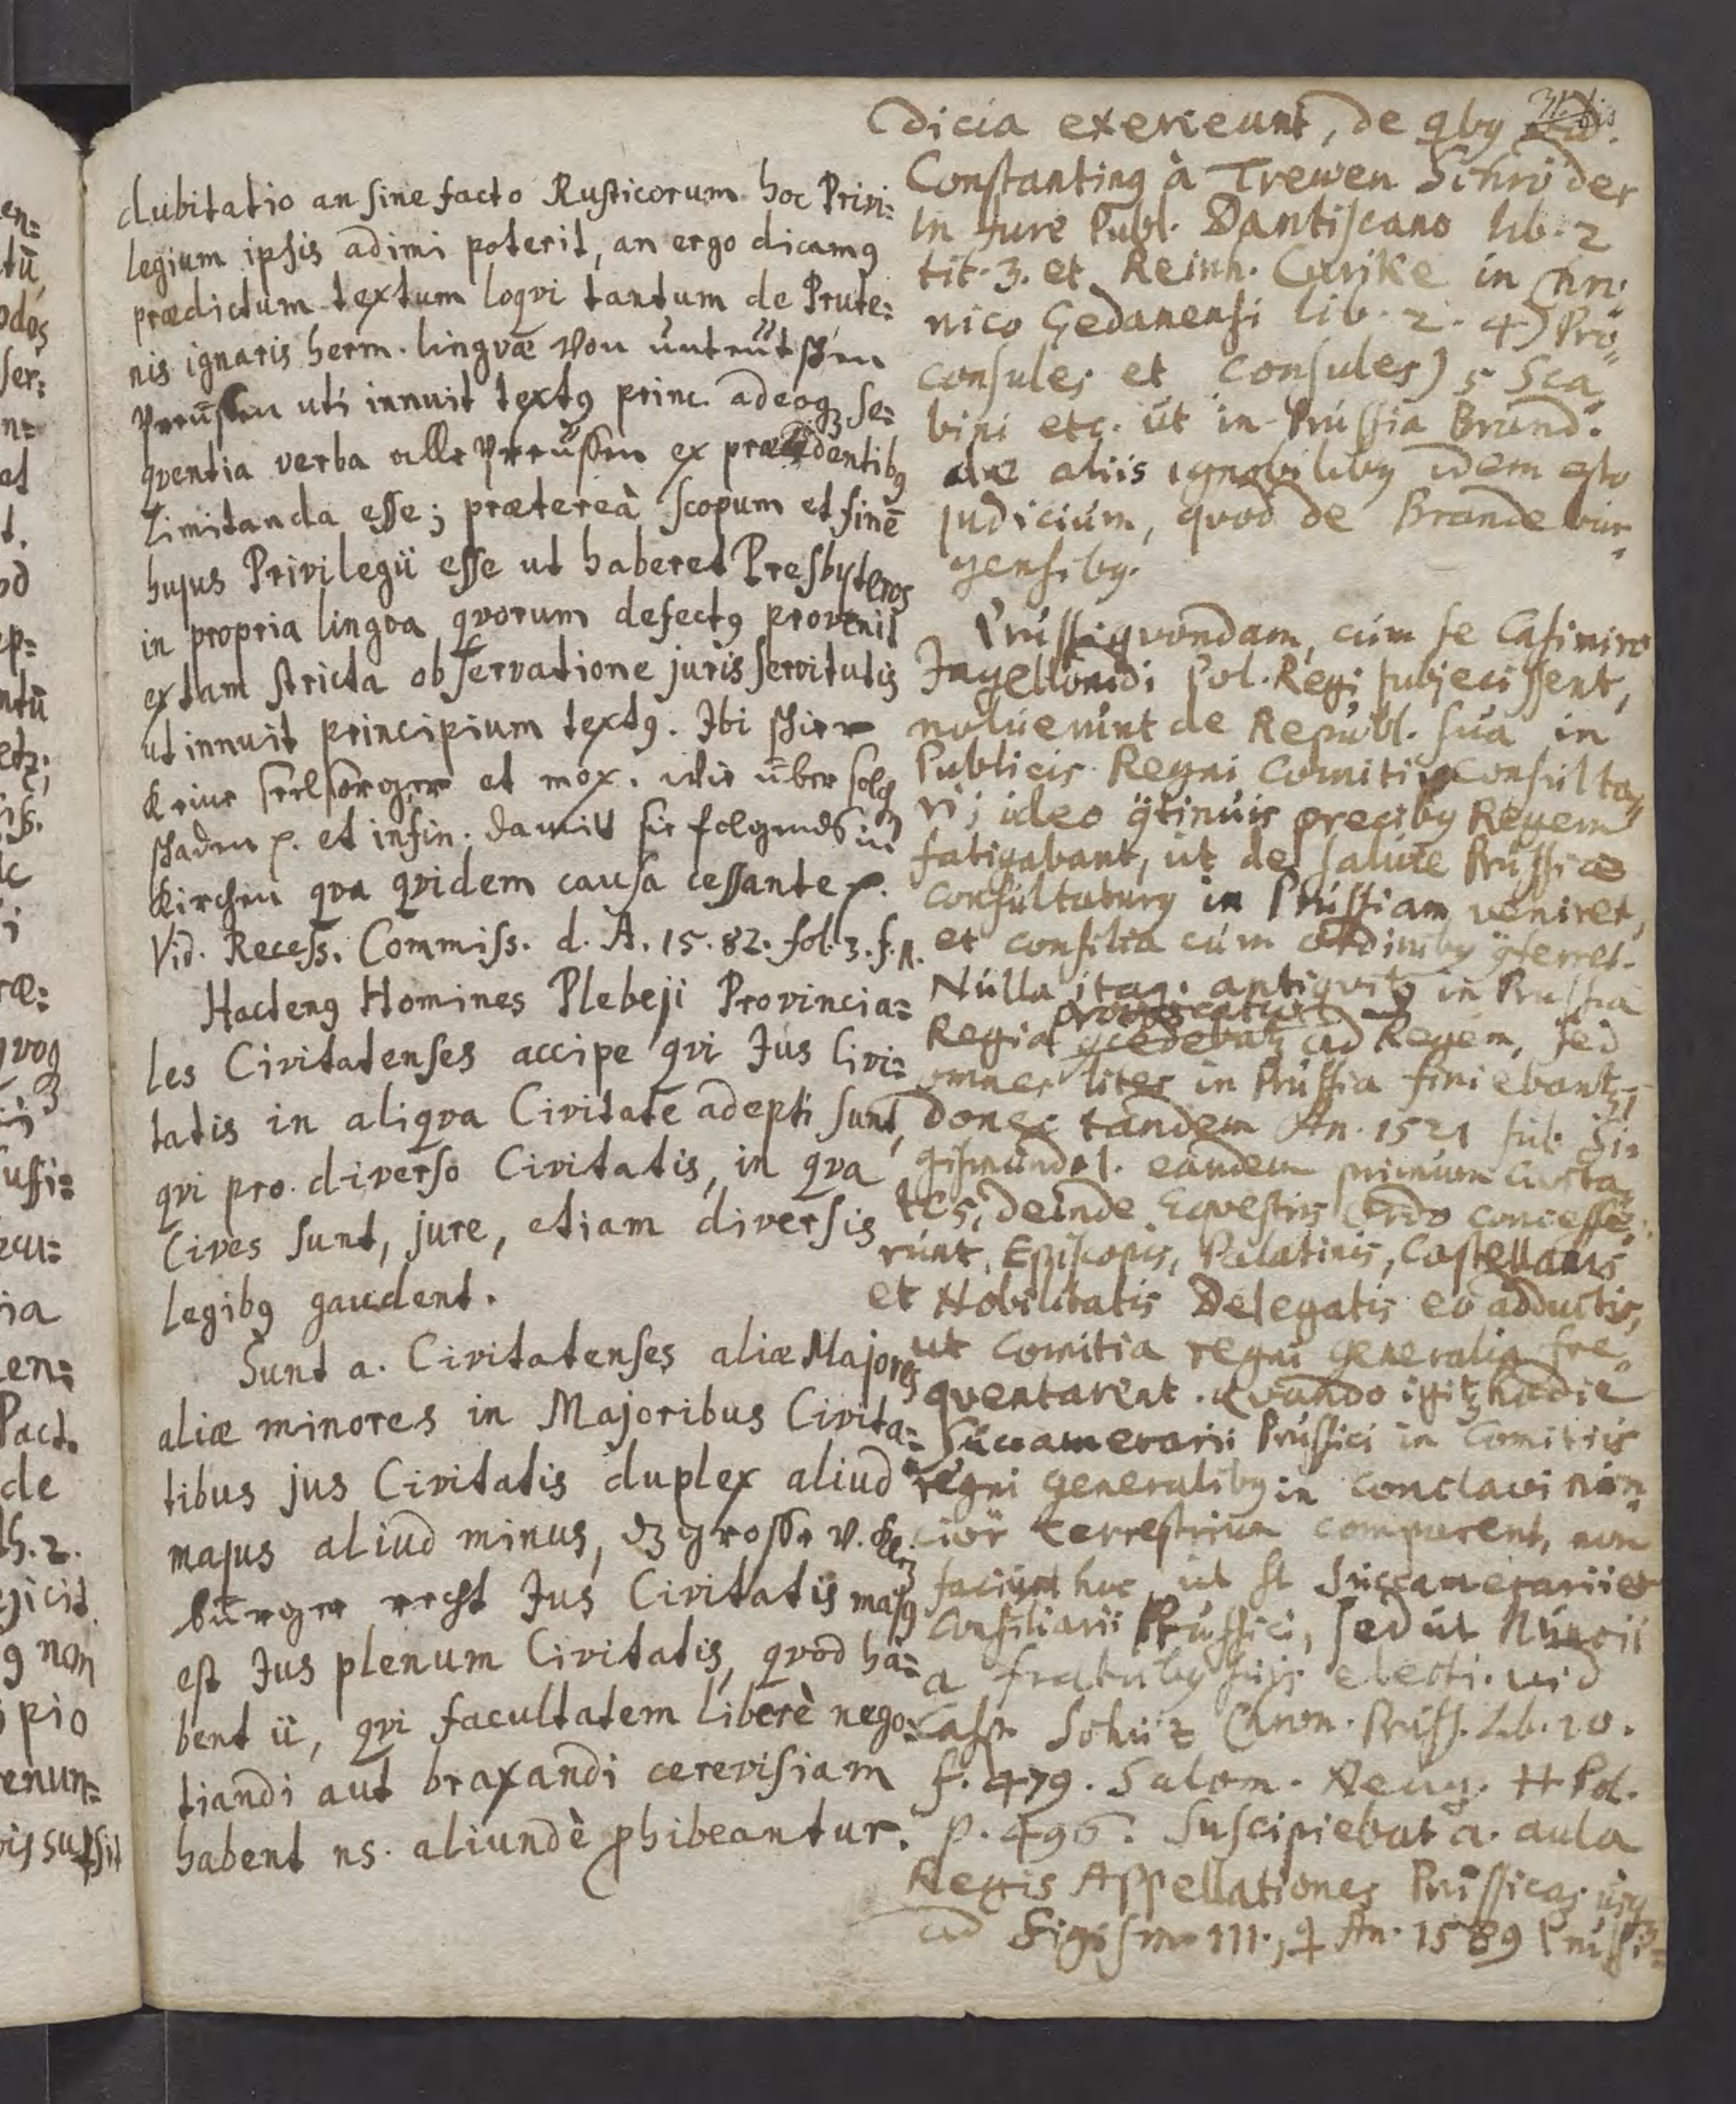 dubitatio an sine facto Rusticorum hoc Privi=
legium ipsis adimi poterit, an ergo dicamꝰ
prædictum textum loqvi tantum de Prute=
nis ignaris herm. lingvæ von unteütschen
Preüssen uti innuit textꝰ princ. adeoqꝫ se=
qventia verba alle Preüssen ex præcedentibꝰ
limitanda esse; prætereà scopum et finē
hujus Privilegii esse ut haberet Presbyteros
in propria lingva qvorum defectꝰ provenit
ex tam stricta observatione juris servitutis
ut innuit principium textꝰ. Ibi schier
Keine seelsorger et mox. wie über solch
schaden p. et in fin. damit sie folgends in
Kirchen qva qvidem causa cessante p.
Vid. Recess. Commiss. d. A. 15.82. fol. 3. f. n.
Hactenꝰ Homines Plebeji Provincia=
les Civitatenses accipe qvi Jus Civi=
tatis in aliqva Civitate adepti sunt,
qvi pro diverso Civitatis, in qva
Cives sunt, jure, etiam diversis
legibꝰ gaudent.
Sunt a. Civitatenses aliæ Majores
aliæ minores in Majoribus Civita=
tibus jus Civitatis duplex aliud
majus aliud minus, dz grosse v. klein
bürger recht Jus Civitatis majꝰ
est Jus plenum Civitatis, qvod ha=
bent ii, qvi facultatem liberè nego=
tiandi aut braxandi cerevisiam
habent ns. aliundè phibeantur.
31. bis
dicia exerceunt, de qbꝰ vid.
Constantinꝰ à Trewen Schröder
in Jure Publ. Dantiscano lib. 2
tit. 3. et Reinh. Curike in Chro=
nico Gedanensi lib. 2. 4) Pro=
consules et Consules) 5 Sca=
bini etc. ut in Prussia Brand.
de aliis ignobilibꝰ idem esto
judicium, quod de Brandebur=
gensibꝰ.
Prussi qvondam, cum se Casimiro
Jagellonidi Pol. Regi subjecissent,
noluerunt de Republ. sua in
Publicis Regni Comitiis consulta=
ri; ideo ꝯtinuis precibꝰ Regem
fatigabant, ut de salute Prussiæ
consultaturꝰ in Prussiam veniret,
et consilia cum ordinibꝰ ꝯferret.
Nulla itaq. antiqvitꝰ in Prussia
Regia provocatio
ꝯcedebat ad Regem, sed
omnes lites in Prussia finiebant,
donec tandem An. 1521 sub Si=
gismundo I. eandem primum Civita=
tes, deinde Eqvestris Ordo concesse=
runt, Episcopis, Palatinis, Castellanis
et Nobilitatis Delegatis eo adductis,
ut Comitia regni generalia fre=
qventarent. Qvando igitꝫ hodie
Succamerarii Prussici in Comitiis
regni generalibꝰ in conclavi nun=
ciör terrestrium comparent, non
faciunt hoc, ut st Succamerarii et
Consiliarii Prussici, sed ut Nuncii
a fratribꝰ suis electi. vid
Casp. Schütz Chron. Pruss. Lib. 10.
f. 479. Salom. Neug. H Pol.
p. 496. Suscipiebat a. aula
Regis Appellationes Prussicas usqꝫ
ad Sigism. III., q An. 1589 Prussi=